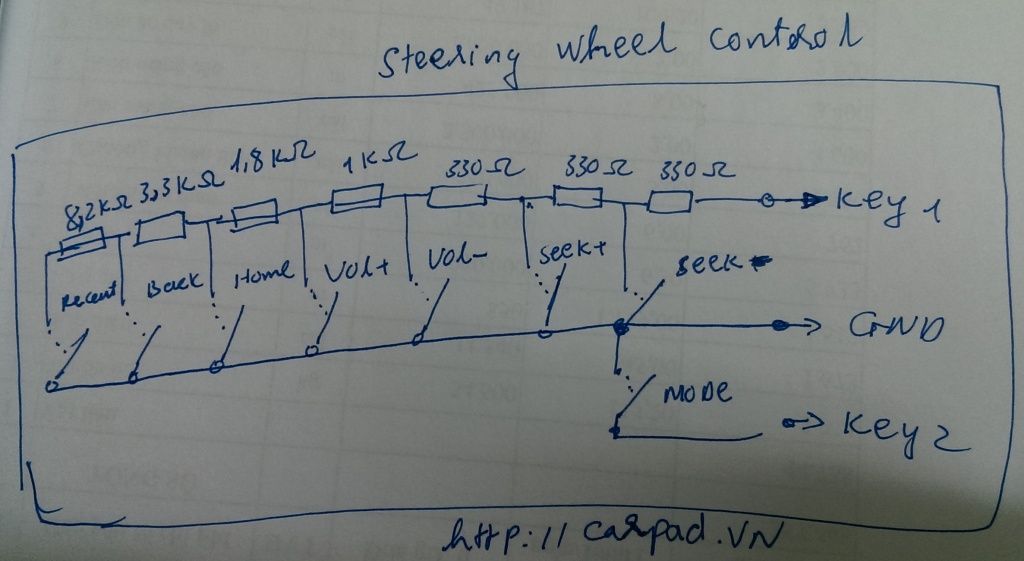 Steering wheel control
8,2KΩ 3,3KΩ 1,8KΩ 1KΩ 330Ω 330Ω 330Ω
Key 1
Recent Back Home Vol+ Vol- Seek+ Seek-
GND
MODE
Key 2
http://carpad.VN